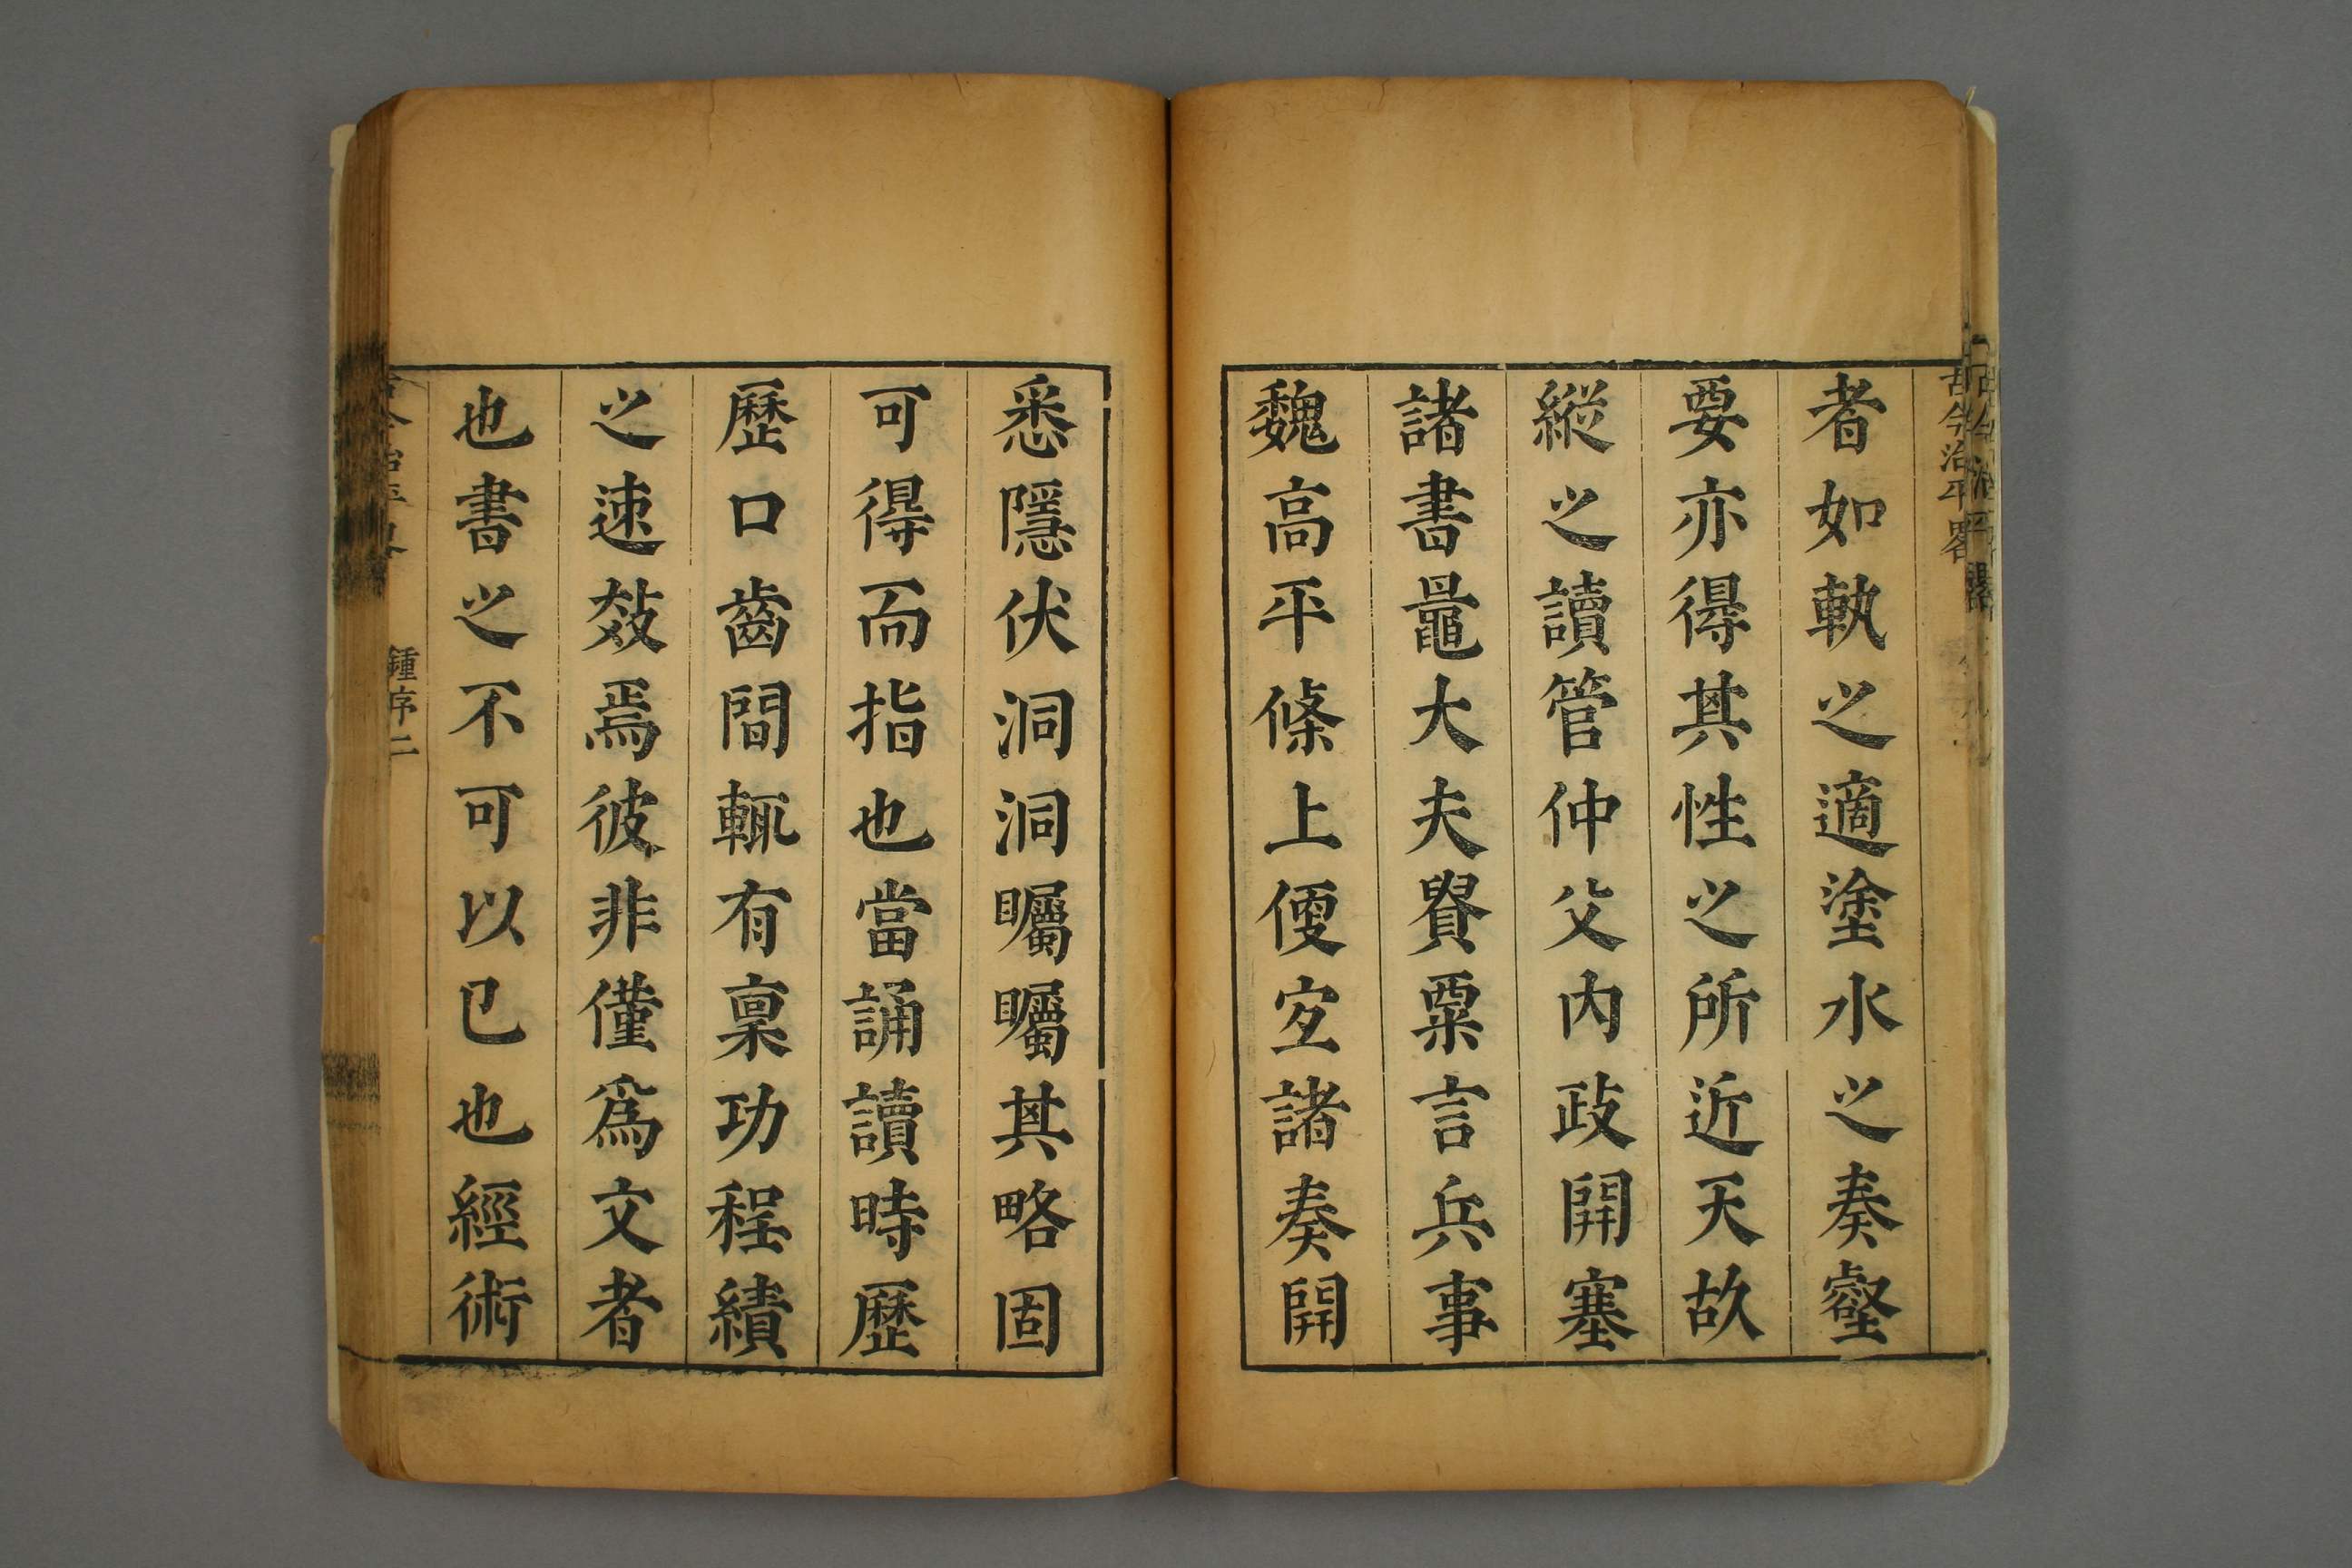 古今治平畧
者如執之適塗水之奏壑
要亦得其性之所近天故
縱之讀管仲父內政開塞
諸書鼂大夫貴粟言兵事
魏高平條上便宐諸奏開
悉隱伏洞洞矚矚其略固
可得而指也當誦讀時歷
歷口齒間輒有稟功程績
之速效焉彼非僅爲文者
也書之不可以已也經術
鍾序二